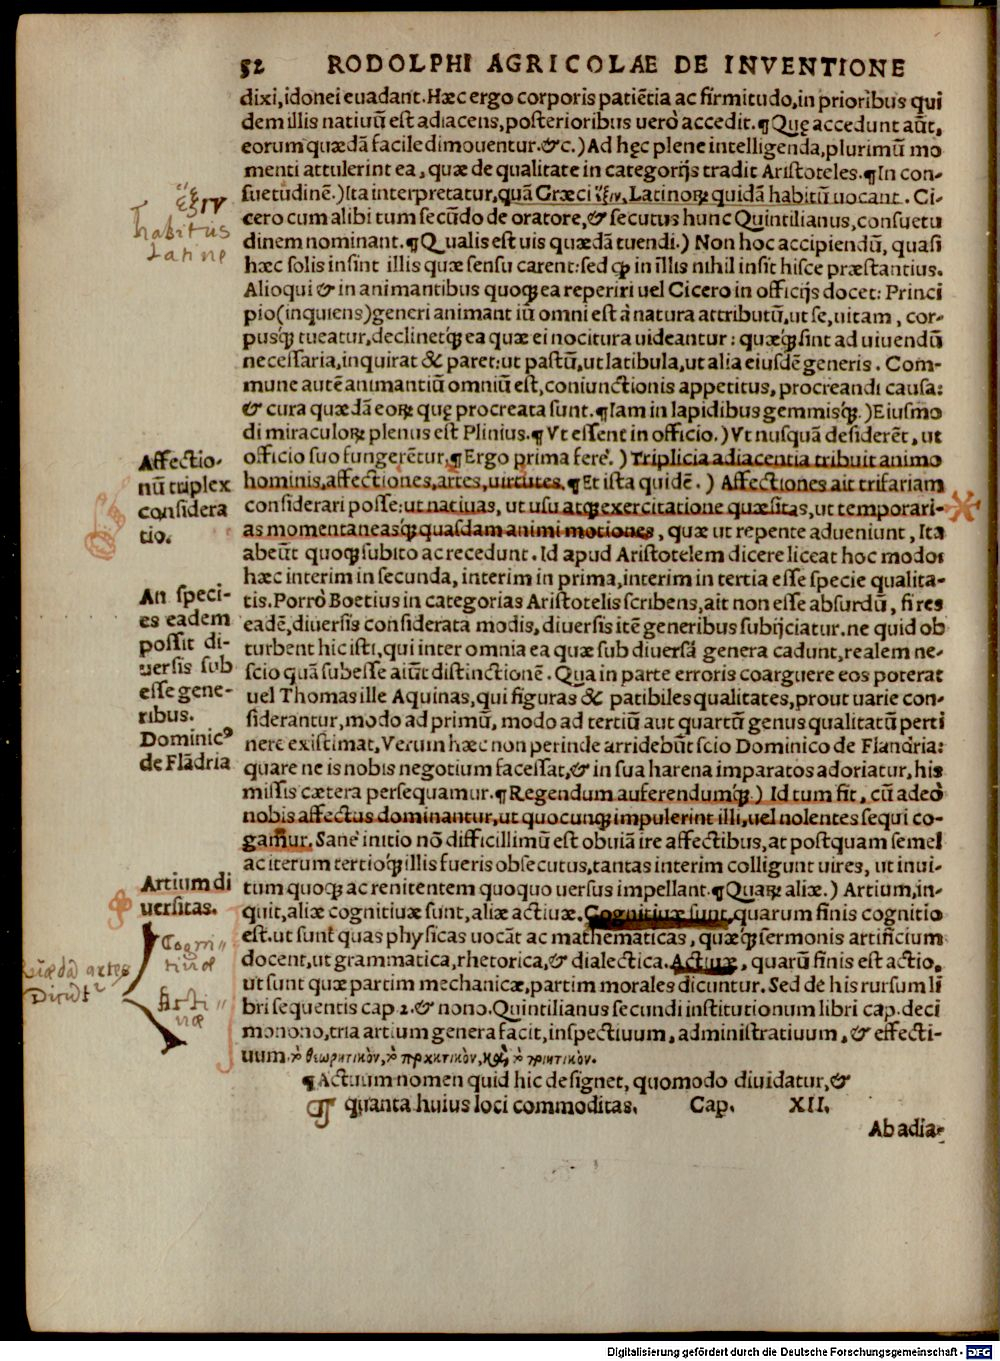 52 RODOLPHI AGRICOLAE DE INVENTIONE
dixi, idonei euadant. Hæc ergo corporis patiẽtia ac firmitudo, in prioribus qui
dem illis natiuũ est adiacens, posterioribus uerò accedit. ¶ Quę accedunt aũt,
eorum quædã facile dimouentur. &c.) Ad hęc plene intelligenda, plurimũ mo
menti attulerint ea, quæ de qualitate in categorijs tradit Aristoteles. ¶ In con-
suetudinẽ.) Ita interpretatur, quã Græci ἕξιν, Latinoꝝ quidã habitũ uocant. Ci-
cero cum alibi tum secũdo de oratore, & secutus hunc Quintilianus, consuetu
dinem nominant. ¶ Qualis est uis quædã tuendi.) Non hoc accipiendũ, quasi
hæc solis insint illis quæ sensu carent: sed ꝙ in illis nihil insit hisce præstantius.
Alioqui & in animantibus quoqꝫ ea reperiri uel Cicero in officijs docet: Princi
pio (inquiens) generi animantiũ omni est à natura attributũ, ut se, uitam, cor-
pusqꝫ tueatur, declinetqꝫ ea quæ ei nocitura uideantur: quæqꝫ sint ad uiuendũ
necessaria, inquirat & paret: ut pastũ, ut latibula, ut alia eiusdẽ generis. Com-
mune autẽ animantiũ omniũ est, coniunctionis appetitus, procreandi causa:
& cura quædã eoꝝ quę procreata sunt. ¶ Iam in lapidibus gemmisqꝫ.) Eiusmo
di miraculoꝝ plenus est Plinius. ¶ Vt essent in officio.) Vt nusquã desiderẽt, ut
officio suo fungerẽtur. ¶ Ergo prima ferè.) Triplicia adiacentia tribuit animo
hominis, affectiones, artes, uirtutes. ¶ Et ista quidẽ.) Affectiones ait trifariam
considerari posse: ut natiuas, ut usu atqꝫ exercitatione quæsitas, ut temporari-
as momentaneasqꝫ quasdam animi motiones, quæ ut repente adueniunt, Ita
abeũt quoqꝫ subito ac recedunt. Id apud Aristotelem dicere liceat hoc modo:
hæc interim in secunda, interim in prima, interim in tertia esse specie qualita-
tis. Porrò Boetius in categorias Aristotelis scribens, ait non esse absurdũ, si res
eadẽ, diuersis considerata modis, diuersis itẽ generibus subijciatur. ne quid ob
turbent hic isti, qui inter omnia ea quæ sub diuersã genera cadunt, realem ne-
scio quã subesse aiũt distinctionẽ. Qua in parte erroris coarguere eos poterat
uel Thomas ille Aquinas, qui figuras & patibiles qualitates, prout uarie con-
siderantur, modo ad primũ, modo ad tertiũ aut quartũ genus qualitatũ perti
nere existimat, Verum hæc non perinde arridebũt scio Dominico de Flandria:
quare ne is nobis negotium facessat, & in sua harena imparatos adoriatur, his
missis cætera persequamur. ¶ Regendum auferendumqꝫ.) Id tum fit, cũ adeò
nobis affectus dominantur, ut quocunqꝫ impulerint illi, uel nolentes sequi co-
gamur. Sanè initio nõ difficillimũ est obuiã ire affectibus, at postquam semel
ac iterum tertioqꝫ illis fueris obsecutus, tantas interim colligunt uires, ut inui-
tum quoqꝫ ac renitentem quoquo uersus impellant. ¶ Quaꝝ aliæ.) Artium, in-
quit, aliæ cognitiuæ sunt, aliæ actiuæ. Cognitiuæ sunt, quarum finis cognitio
est. ut sunt quas physicas uocãt ac mathematicas, quæqꝫ sermonis artificium
docent, ut grammatica, rhetorica, & dialectica. Actiuæ, quarũ finis est actio,
ut sunt quæ partim mechanicæ, partim morales dicuntur. Sed de his rursum li
bri sequentis cap. 2. & nono. Quintilianus secundi institutionum libri cap. deci
monono, tria artium genera facit, inspectiuum, administratiuum, & effecti-
uum. τὸ θεωρητικὸν, τὸ πρακτικὸν, καὶ τὸ ποιητικὸν.
¶ Actuum nomen quid hic designet, quomodo diuidatur, &
quanta huius loci commoditas. Cap. XII.
Ab adia-
ἕξιν
habitus
Latine
Affectio-
nũ triplex
considera
tio.
An speci-
es eadem
possit di-
uersis sub
esse gene-
ribus.
Dominicꝰ
de Flãdria
Artium di
uersitas.
artes
Cogni
tiuæ
Acti
uæ
Digitalisierung gefördert durch die Deutsche Forschungsgemeinschaft - DFG